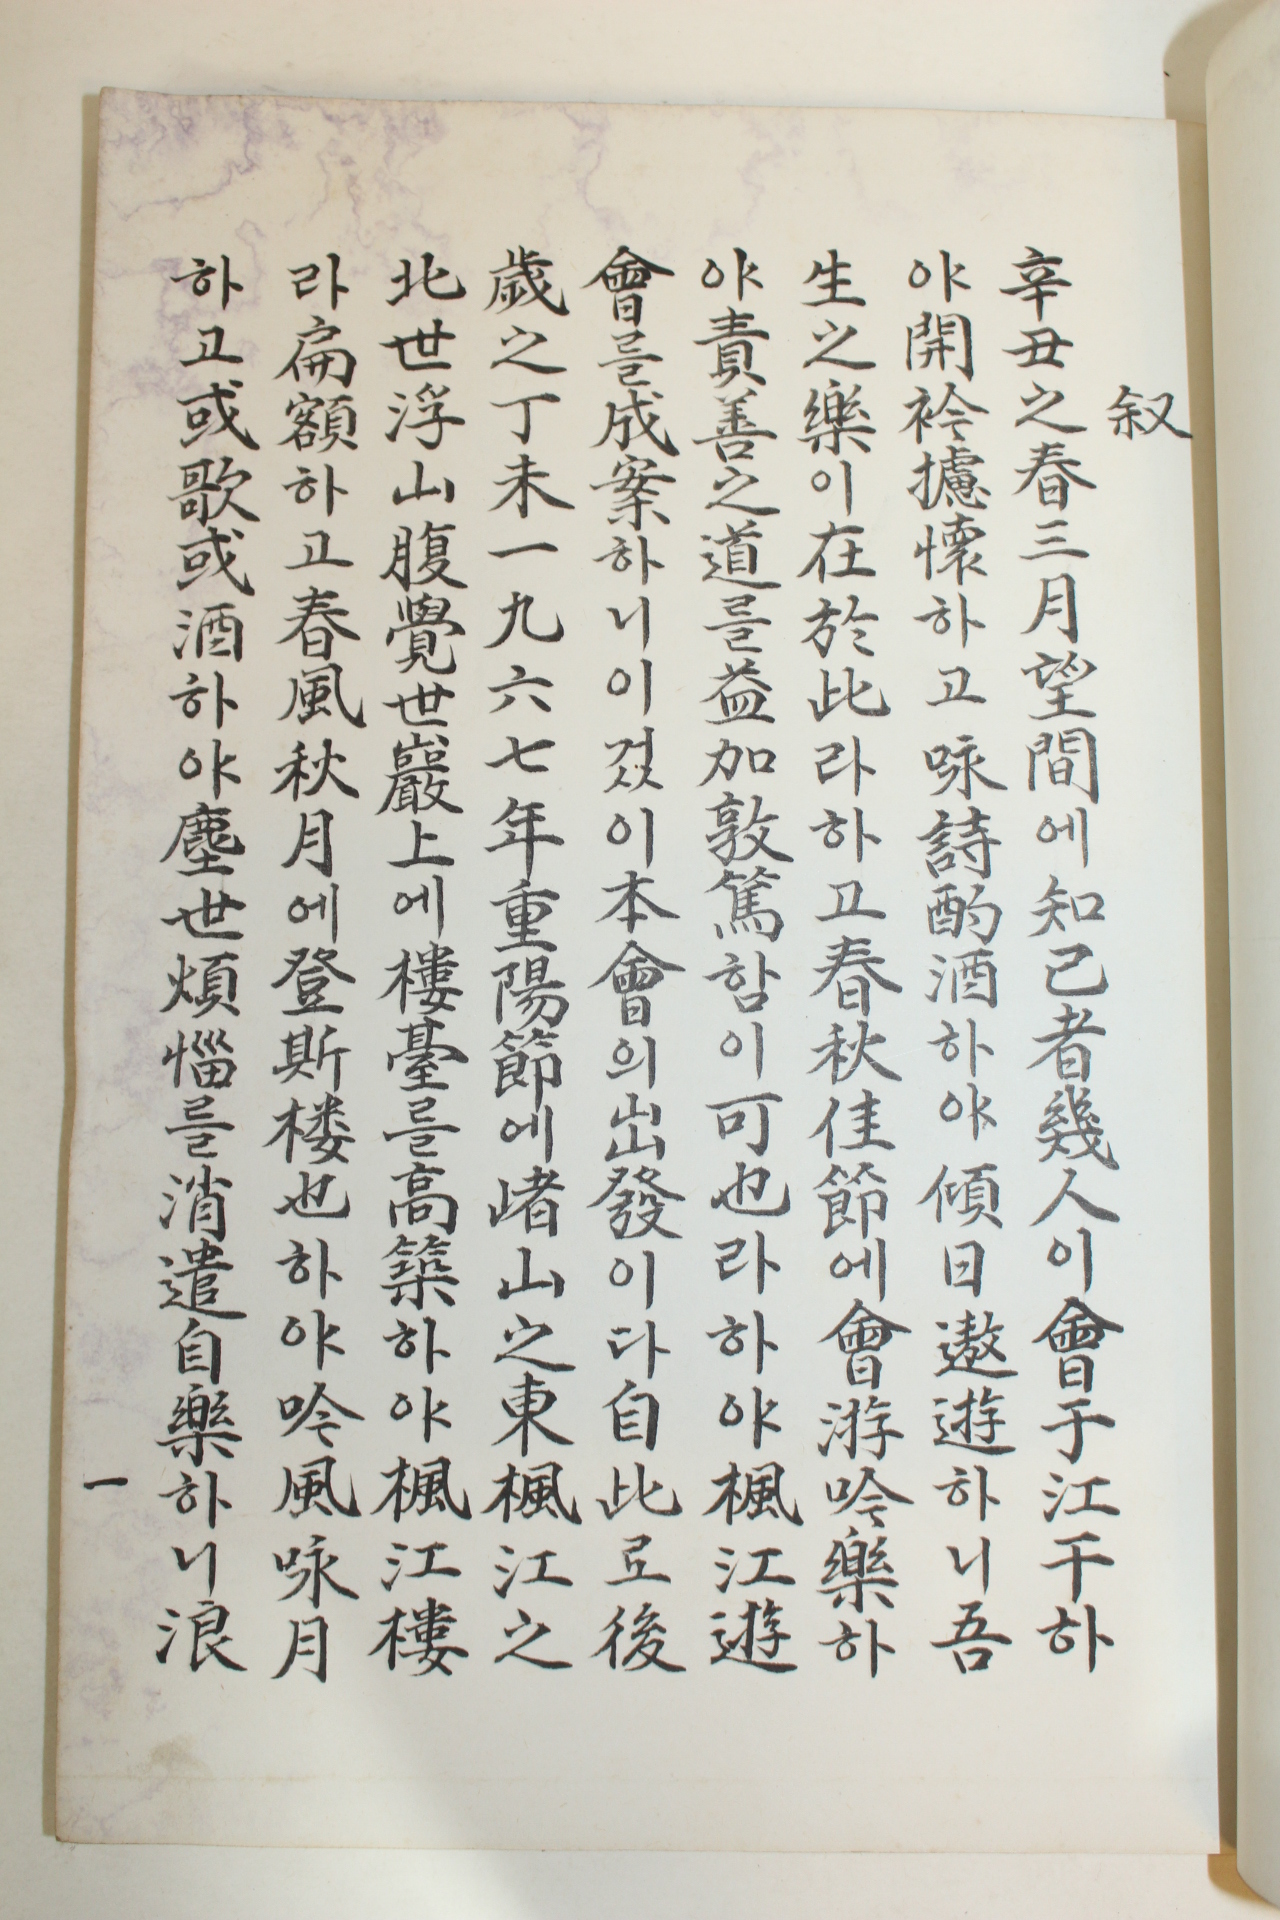 叙
辛丑之春三月望間에知己者幾人이會于江干하
야開衿攄懷하고咏詩酌酒하야傾日遨遊하니吾
生之樂이在於此라하고春秋佳節에會游吟樂하
야責善之道를益加敦篤함이可也라하야楓江遊
會를成案하니이것이本會의出發이다自此로後
歲之丁未一九六七年重陽節에峠山之東楓江之
北世浮山腹覺世巖上에樓臺를高築하야楓江樓
라扁額하고春風秋月에登斯楼也하야吟風咏月
하고或歌或酒하야塵世煩惱를消遣自樂하니浪
一